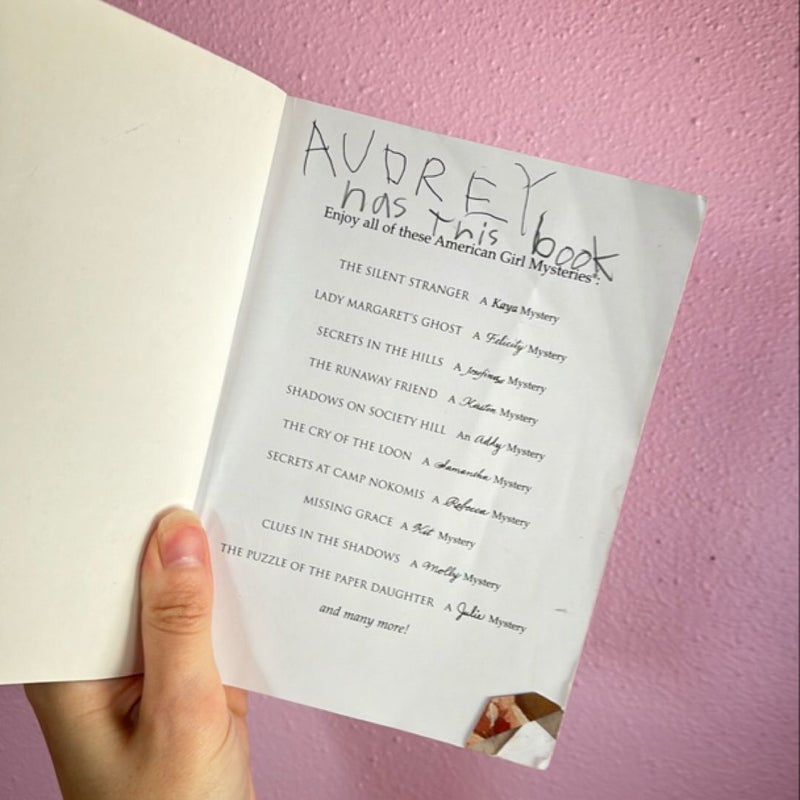 AUDREY
has This book
Enjoy all of these American Girl Mysteries®:
THE SILENT STRANGER A Kaya Mystery
LADY MARGARET'S GHOST A Felicity Mystery
SECRETS IN THE HILLS A Josefina Mystery
THE RUNAWAY FRIEND A Kirsten Mystery
SHADOWS ON SOCIETY HILL An Addy Mystery
THE CRY OF THE LOON A Samantha Mystery
SECRETS AT CAMP NOKOMIS A Rebecca Mystery
MISSING GRACE A Kit Mystery
CLUES IN THE SHADOWS A Molly Mystery
THE PUZZLE OF THE PAPER DAUGHTER A Julie Mystery
and many more!